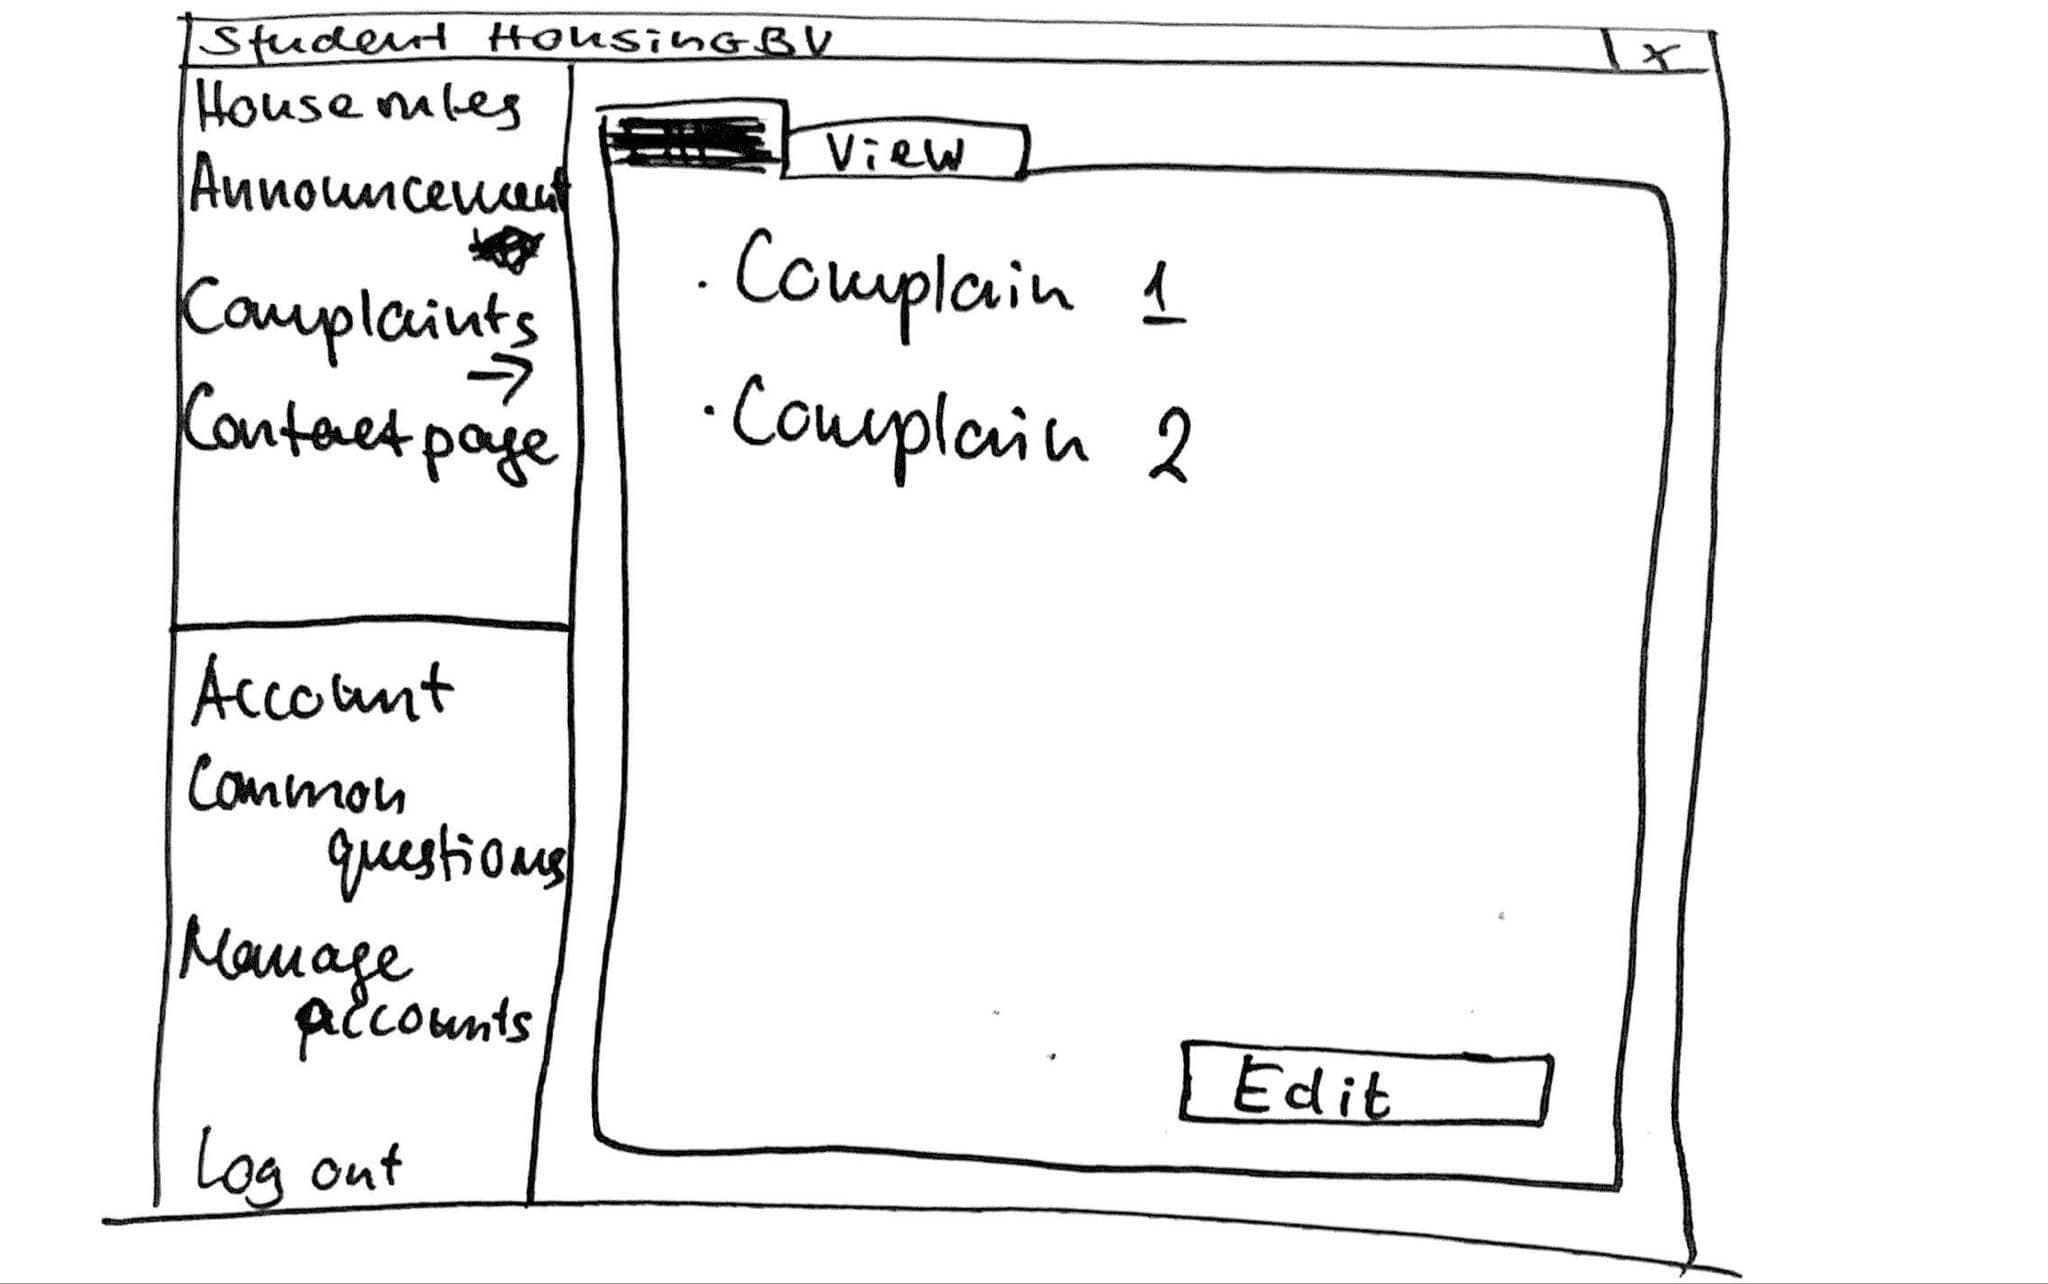 Student HousingBV x
House rules
Announcement
Complaints
→
Contact page
Account
Common
questions
Manage
accounts
Log out
View
· Complain 1
· Complain 2
Edit